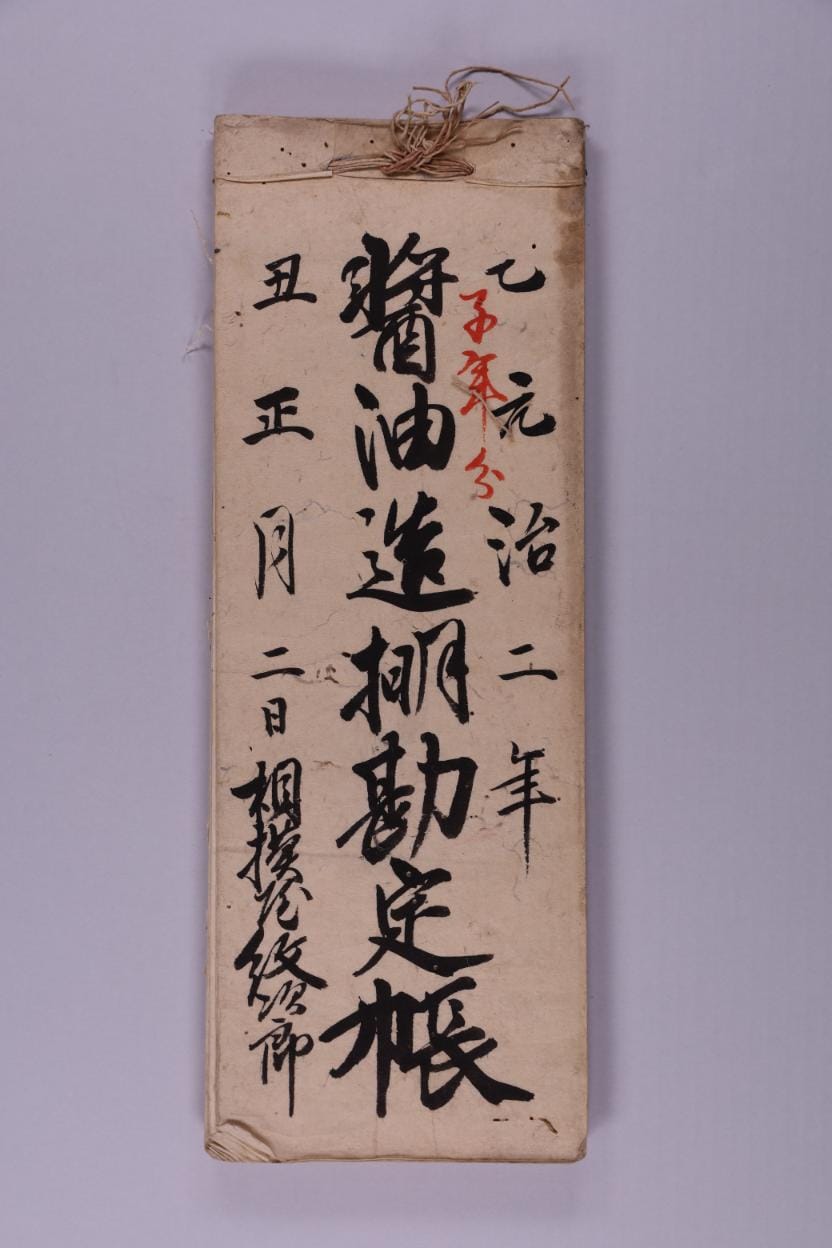 乙元治二年
子年分
醤油造棚勘定帳
丑正月二日相模屋紋次郎